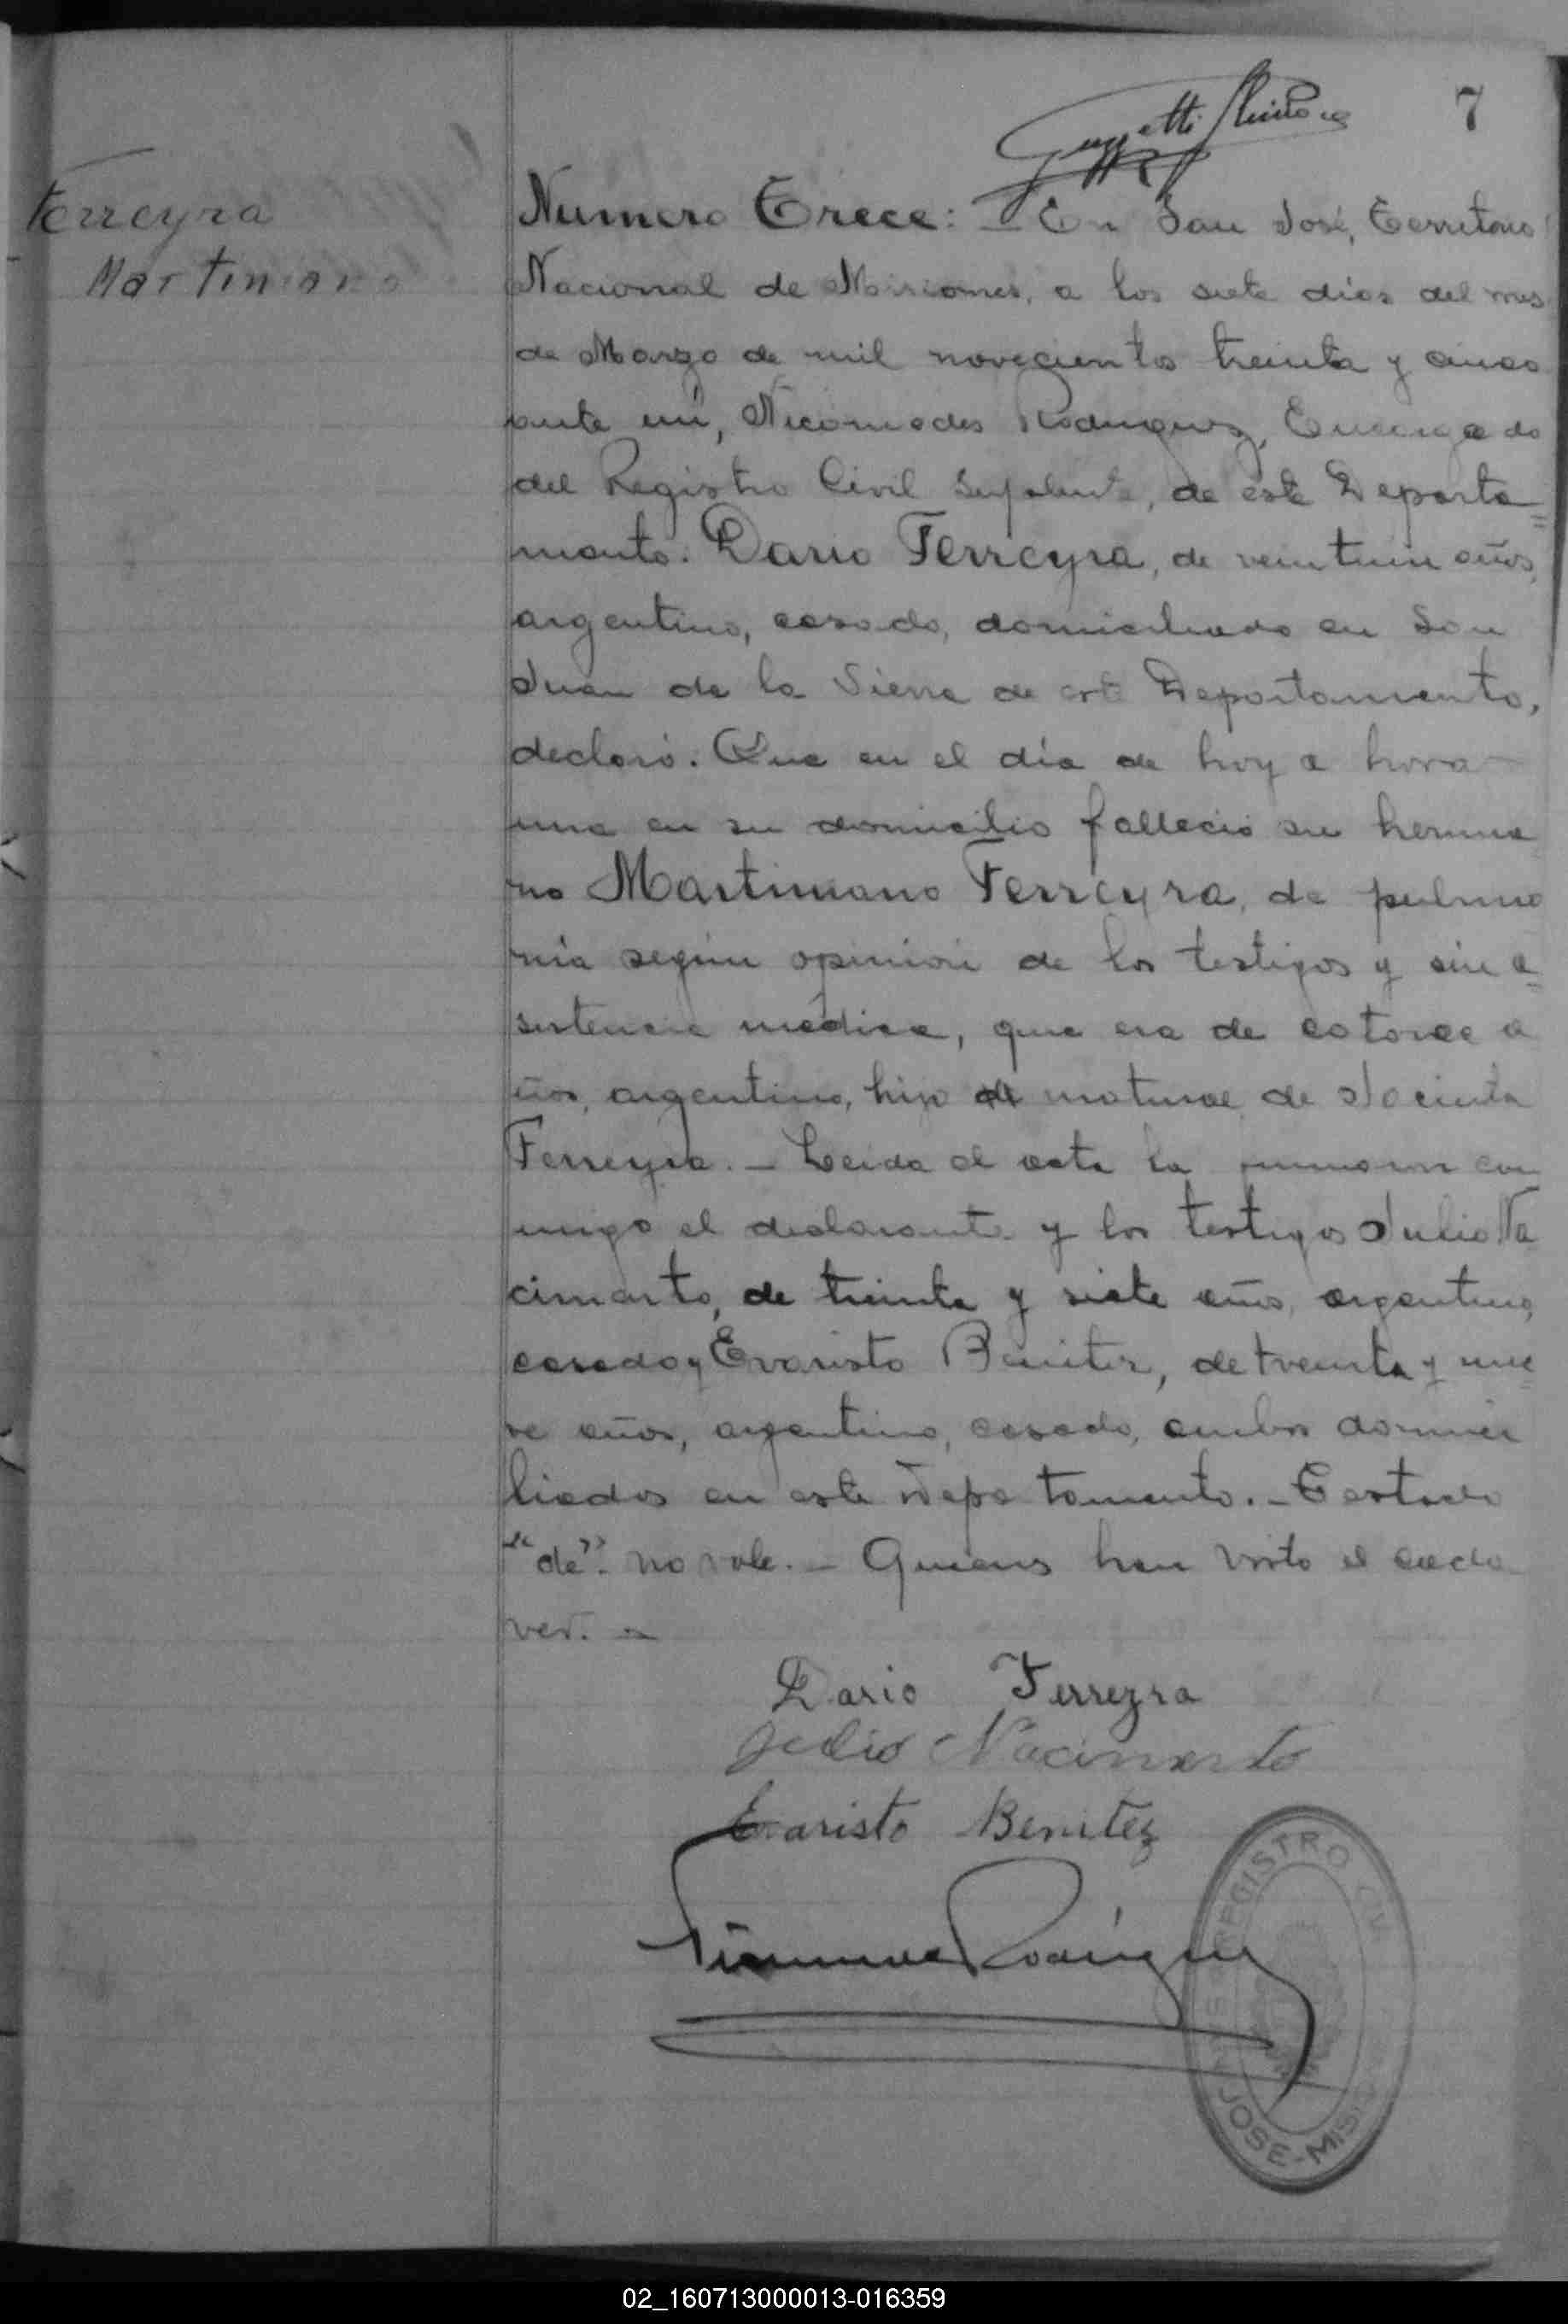 7
Ferreyra
Martiniano
Numero Trece: - En San José, Territorio
Nacional de Misiones, a los siete dias del mes
de Marzo de mil novecientos treinta y cinco
ante mi, Nicomedes Rodriguez, Encargado
del Registro Civil Suplente, de este Departa=
mento. Dario Ferreyra, de años,
argentino, casado, domiciliado en San
Juan de la Sierra de este Departamento,
declaró: Que en el día de hoy a hora
una en su domicilio falleció su herma
no Martiniano Ferreyra, de pulmo
nía según opinión de los testigos y sin a=
sistencia médica, que era de catorce a
ños, argentino, hijo de natural de Jacinta
Ferreyra. - Leida el acta la firmaron con
migo el declarante y los testigos Julio Na
cimento, de treinta y siete años, argentino,
casado y Evaristo Benitez, de treinta y nue
ve años, argentino, casado, ambos domici
liados en este Departamento. - Testado
"de". no vale. - Quienes han visto el cada
ver. -
Dario Ferreyra
Julio Nacimento
Evaristo Benitez
Nicomedes Rodriguez
REGISTRO CIV
JOSE-MISIO
02_160713000013-016359